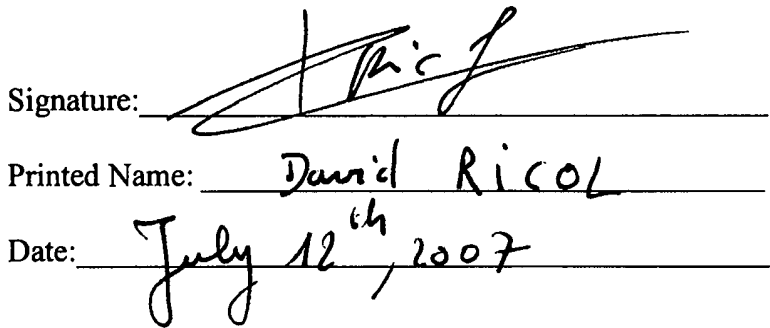 Signature: Ricol
Printed Name: David RicoL
Date: July 12th, 2007